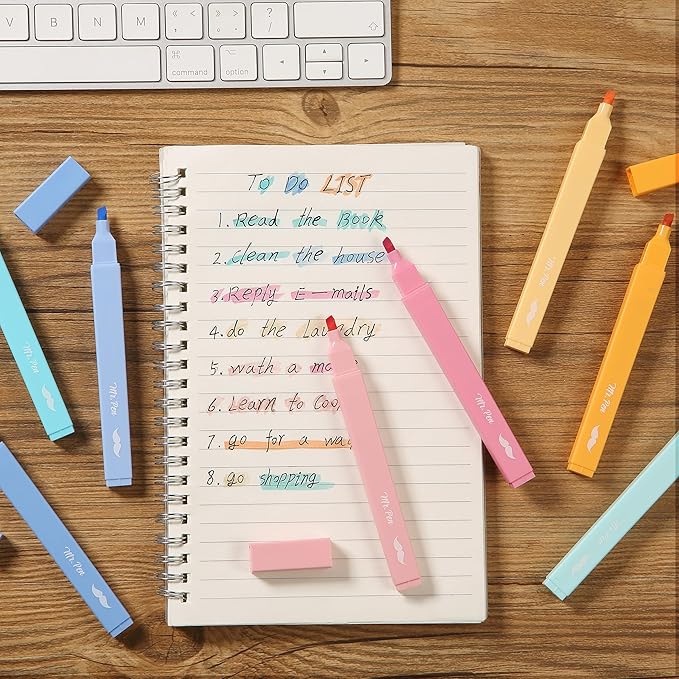 V B N M < , > . ? /
command option
TO DO LIST
1. Read the Book
2. clean the house
3. Reply E-mails
4. do the Laundry
5. wath a
6. Learn to
7. go for a
8. go shopping
Mr. Pen
Mr. Pen
Mr. Pen
Mr. Pen
Mr. Pen
Mr. Pen
Mr. Pen
Mr. Pen